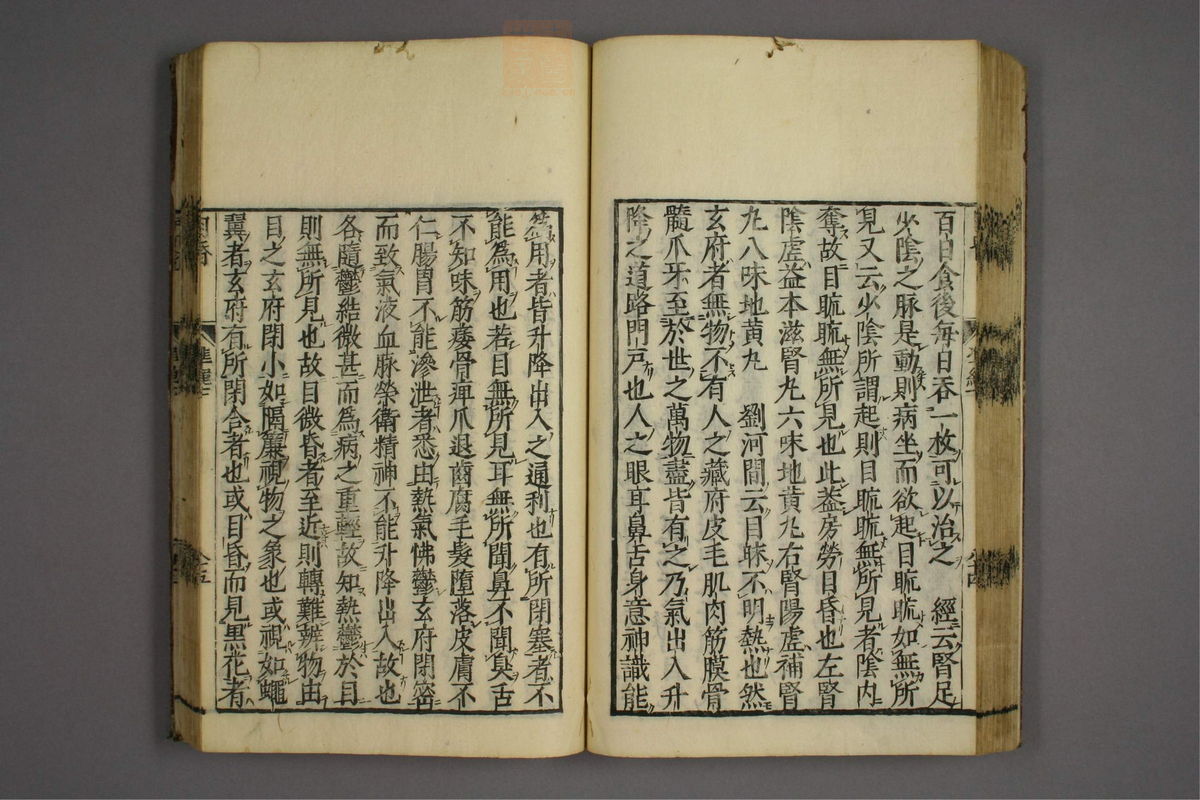 百日食後每日吞一枚可以治之　經云腎足
少陰之脉是動則病坐而欲起目䀮䀮如無所
見又云少陰所謂起則目䀮䀮無所見者陰内
奪故目䀮䀮無所見也此葢房勞目昏也左腎
陰虛益本滋腎丸六味地黄丸右腎陽虛補腎
丸八味地黄丸　劉河間云目昧不明熱也然
玄府者無物不有人之藏府皮毛肌肉筋膜骨
髓爪牙至於世之萬物盡皆有之乃氣出入升
降之道路門戸也人之眼耳鼻舌身意神識能
爲用者皆升降出入之通利也有所閉塞者不
能爲用也若目無所見耳無所聞鼻不聞臭舌
不知味筋痿骨痺爪退齒腐毛髮墮落皮膚不
仁腸胃不能滲泄者悉由熱氣怫鬱玄府閉密
而致氣液血脉榮衛精神不能升降出入故也
各隨鬱結微甚而爲病之重輕故知熱鬱於目
則無所見也故目微昏者至近則轉難辨物由
目之玄府閉小如隔簾視物之象也或視如蠅
翼者玄府有所閉合者也或目昏而見黒花者